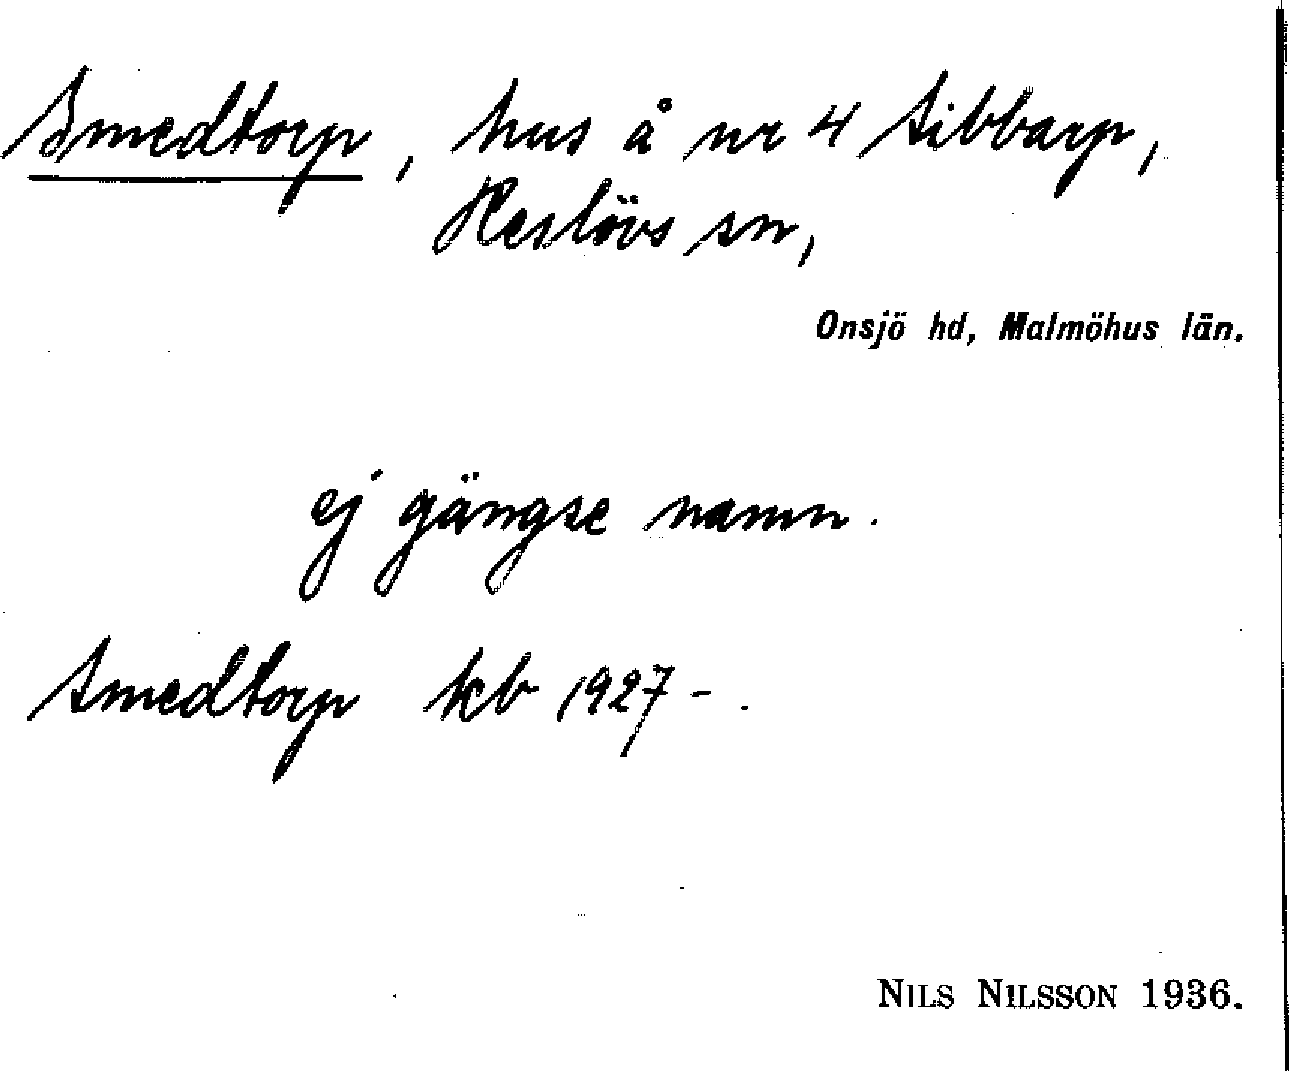 Smedtorp, hus å nr 4 Sibbarp,
Reslövs sn,
Onsjö hd, Malmöhus län.
ej gängse namn.
Smedtorp kb 1927-.
NILS NILSSON 1936.